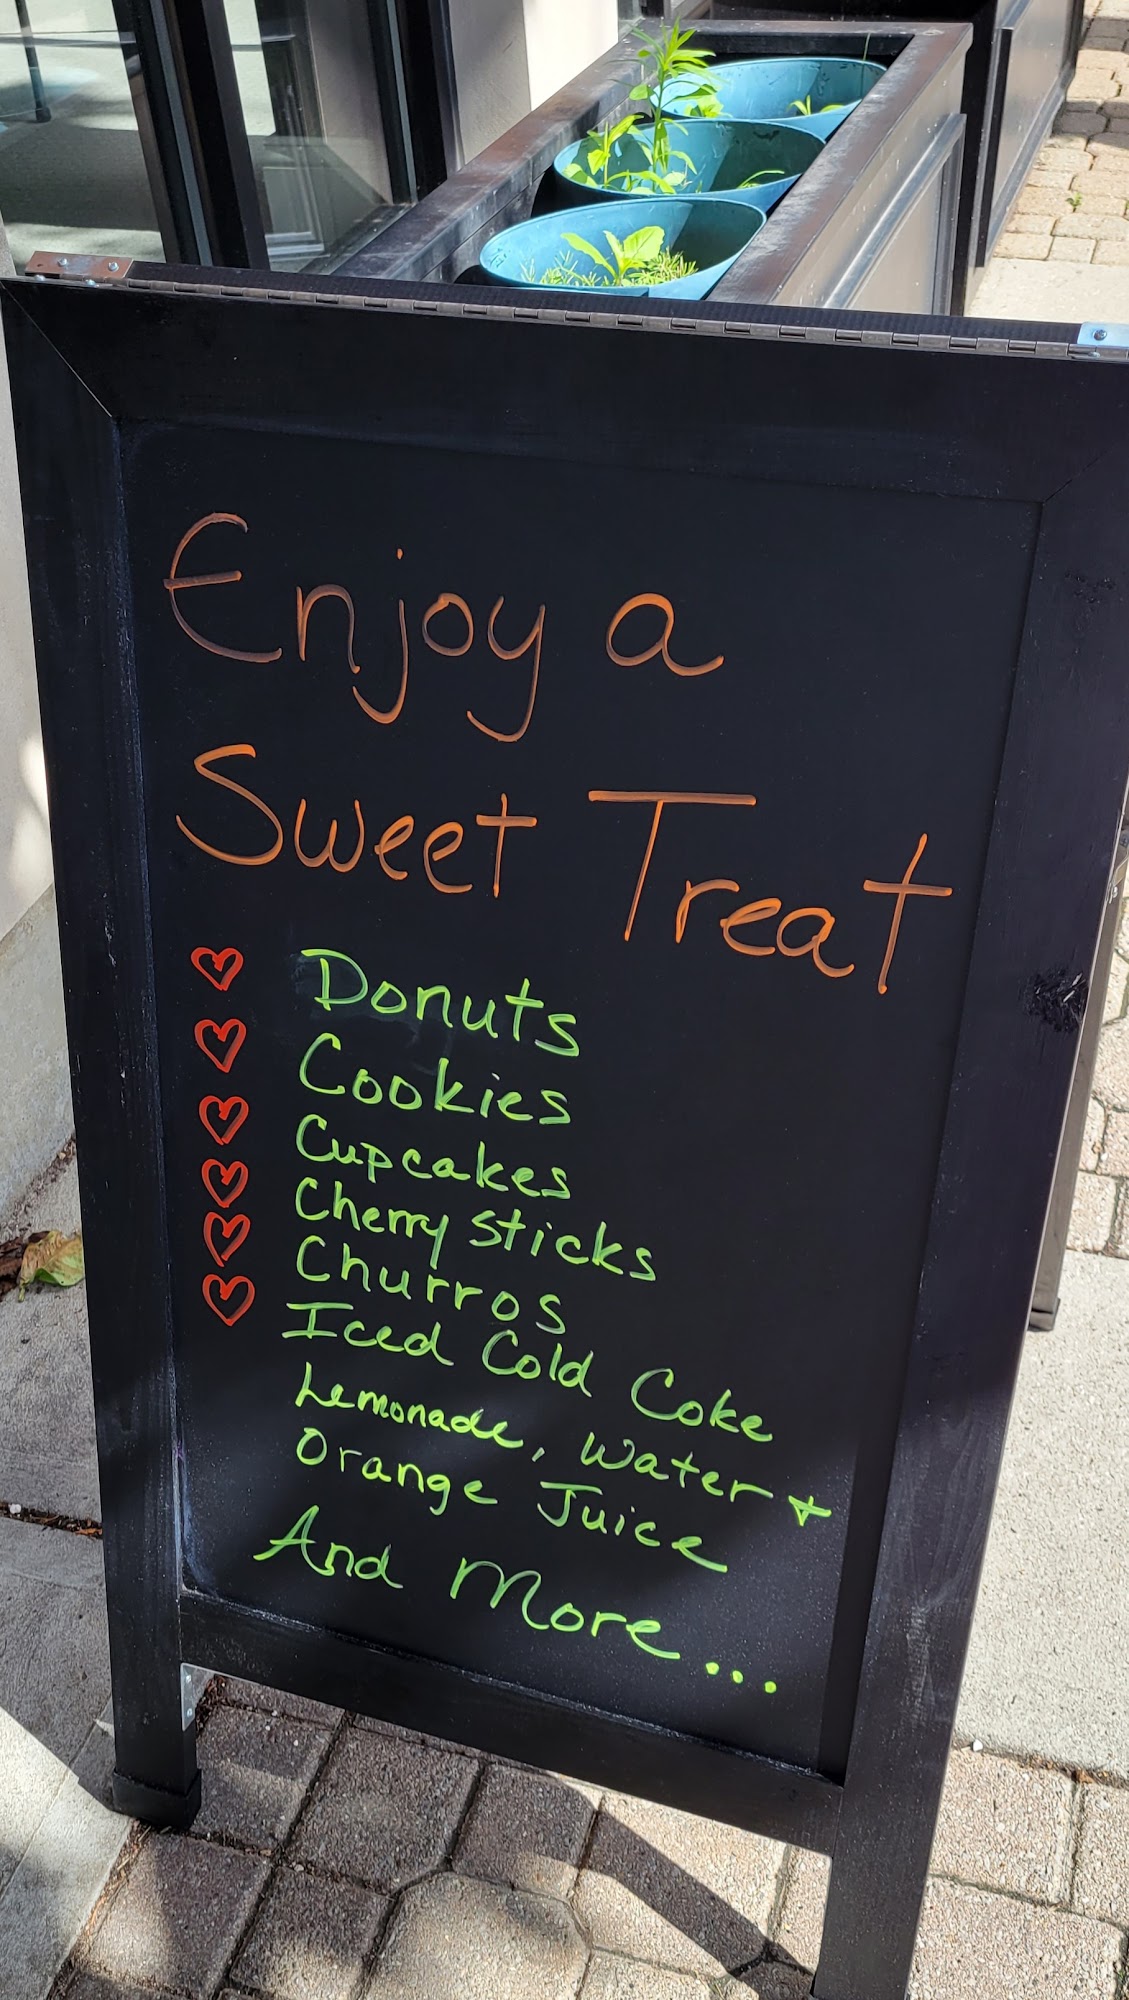 Enjoy a
Sweet Treat
Donuts
Cookies
Cupcakes
Cherry Sticks
Churros
Iced Cold Coke
Lemonade, Water &
Orange Juice
And More...